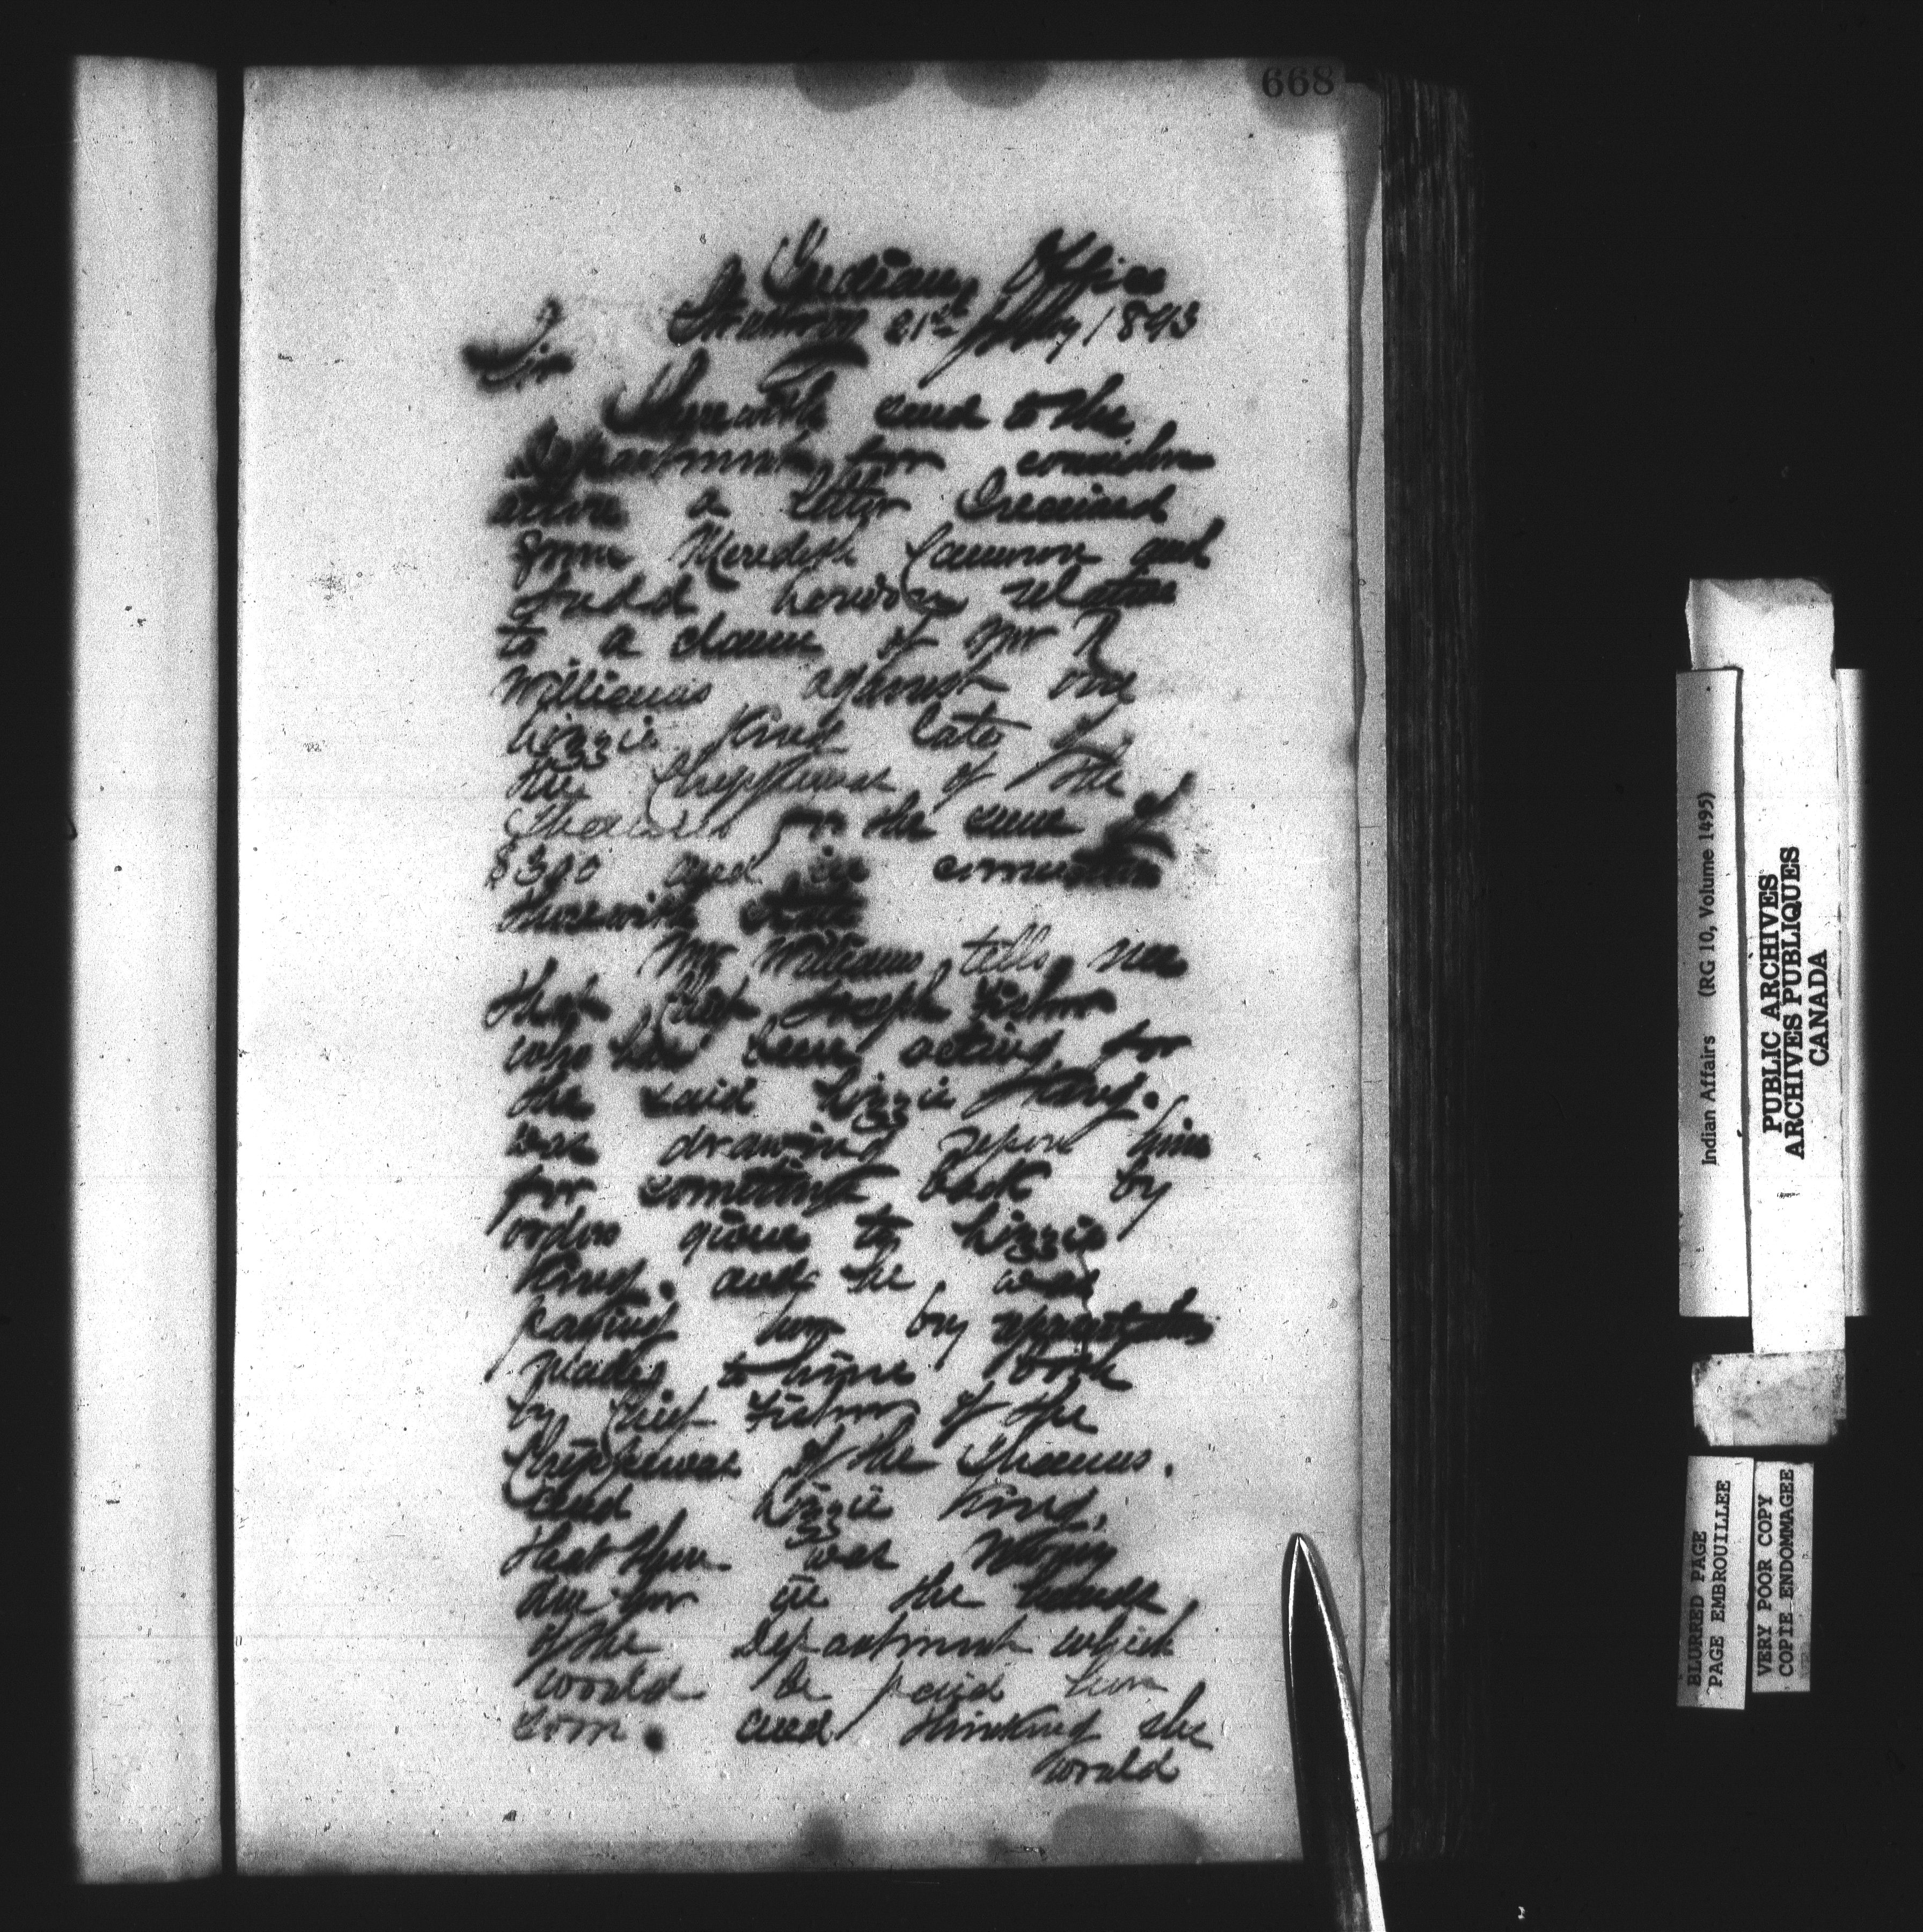 668
Indian Office
Strathroy 21st July 1893
Sir
I herewith send to the
Department for consider
ation a letter I received
from Meredith Cameron and
Judd London relative
to a claim of Mr R
Williams against one
Lizzie King late of
the Chippewas of the
Thames for the sum of
$300 and in
therewith state
Mr Williams tells me
that Chief Joseph Fisher
who had been acting for
the said Lizzie King.
was drawing upon him
for something back by
orders given to Lizzie
King. and he was
paying her by
made to him both
by Chief Fisher of the
Chippewas of the Thames.
and Lizzie King,
that there was money
due her in the hands
of the Department which
would be paid her
soon. and thinking she
would
Indian Affairs (RG 10, Volume 1495)
PUBLIC ARCHIVES
ARCHIVES PUBLIQUES
CANADA
BLURRED PAGE
PAGE EMBROUILLEE
VERY POOR COPY
COPIE ENDOMMAGEE